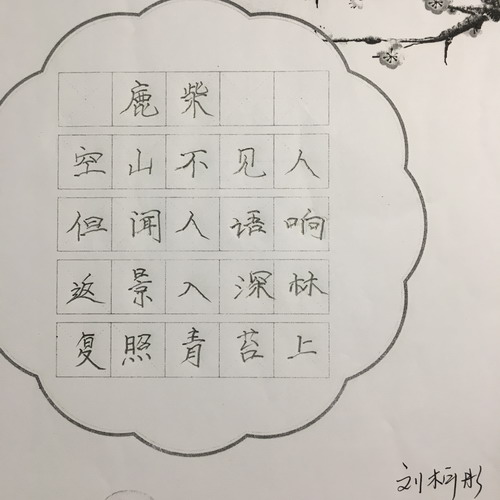 鹿柴
空山不见人
但闻人语响
返景入深林
复照青苔上
刘柯彤